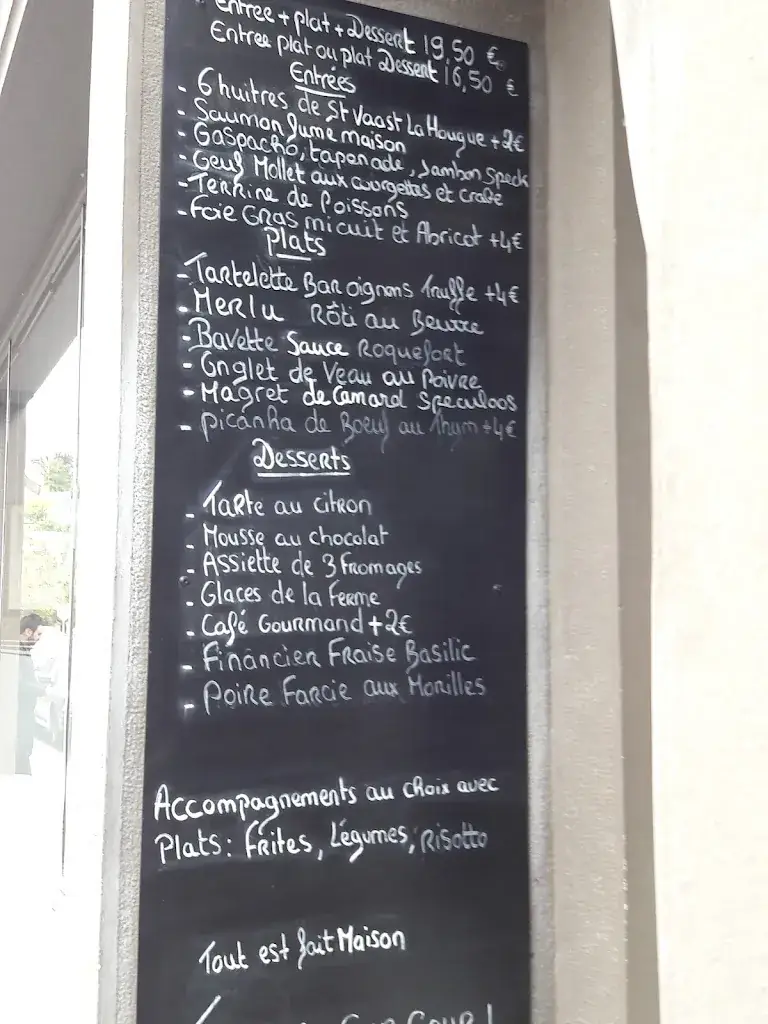 Entree + plat + Dessert 19,50 €
Entree plat ou plat Dessert 16,50 €
Entrées
- 6 huitres de St Vaast La Hougue +2€
- Saumon fumé maison
- Gaspacho, tapenade, Jambon Speck
- Oeuf Mollet aux courgettes et crabe
- Terrine de Poissons
- Foie Gras micuit et Abricot +4€
Plats
- Tartelette Bar oignons Truffe +4€
- Merlu Rôti au Beurre
- Bavette Sauce Roquefort
- Onglet de Veau au Poivre
- Magret de Canard Speculoos
- Picanha de Boeuf au Thym +4€
Desserts
- Tarte au citron
- Mousse au chocolat
- Assiette de 3 fromages
- Glaces de la Ferme
- Café Gourmand +2€
- Financier Fraise Basilic
- Poire Farcie aux Morilles
Accompagnements au choix avec
Plats: Frites, Légumes, Risotto
Tout est fait Maison